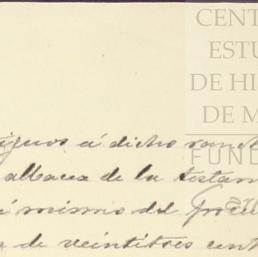 CENT
ESTU
DE HI
DE M
FUND
iguos á dicho ranch
albacea de la testam
á mismo del
de veintitres cent